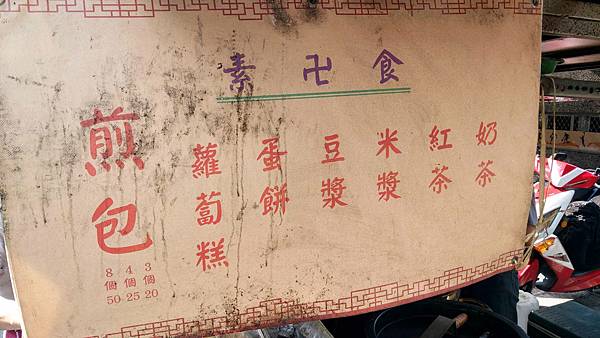 素卍食
煎包
8個50
4個25
3個20
蘿蔔糕
蛋餅
豆漿
米漿
紅茶
奶茶